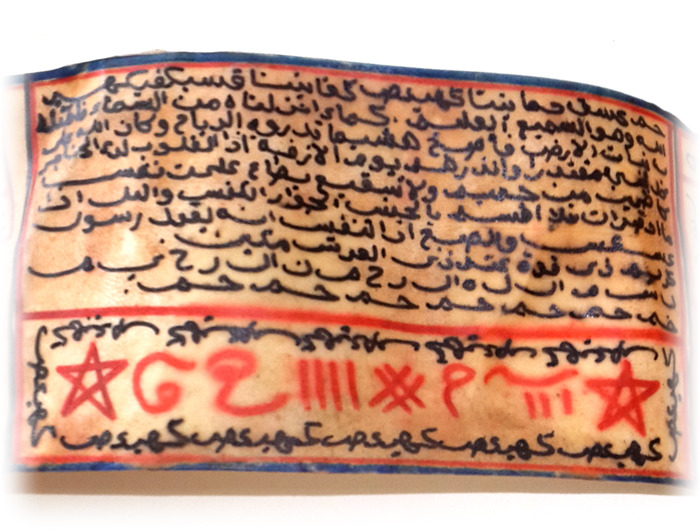 حم عسق حمايتنا كهيعص كفايتنا فسيكفيكهم
الله وهو السميع العليم كماء انزلناه من السماء فاختلط
به نبات الارض فاصبح هشيما تذروه الرياح وكان
شي مقتدر وانذرهم يوم الازفة اذ القلوب لدى الحناجر
من حميم ولا شفيع يطاع علمت نفس
ما احضرت فلا اقسم بالخنس الجوار الكنس والليل اذا
عسعس والصبح اذا تنفس انه لقول رسول
كريم ذي قوة عند ذي العرش مكين
ب س م ا ل ل ه ا ل ر ح م ن ا ل ر ح ي م
حم حم حم حم حم حم حم
كهيعص كهيعص كهيعص كهيعص كهيعص
كهيعص
كهيعص